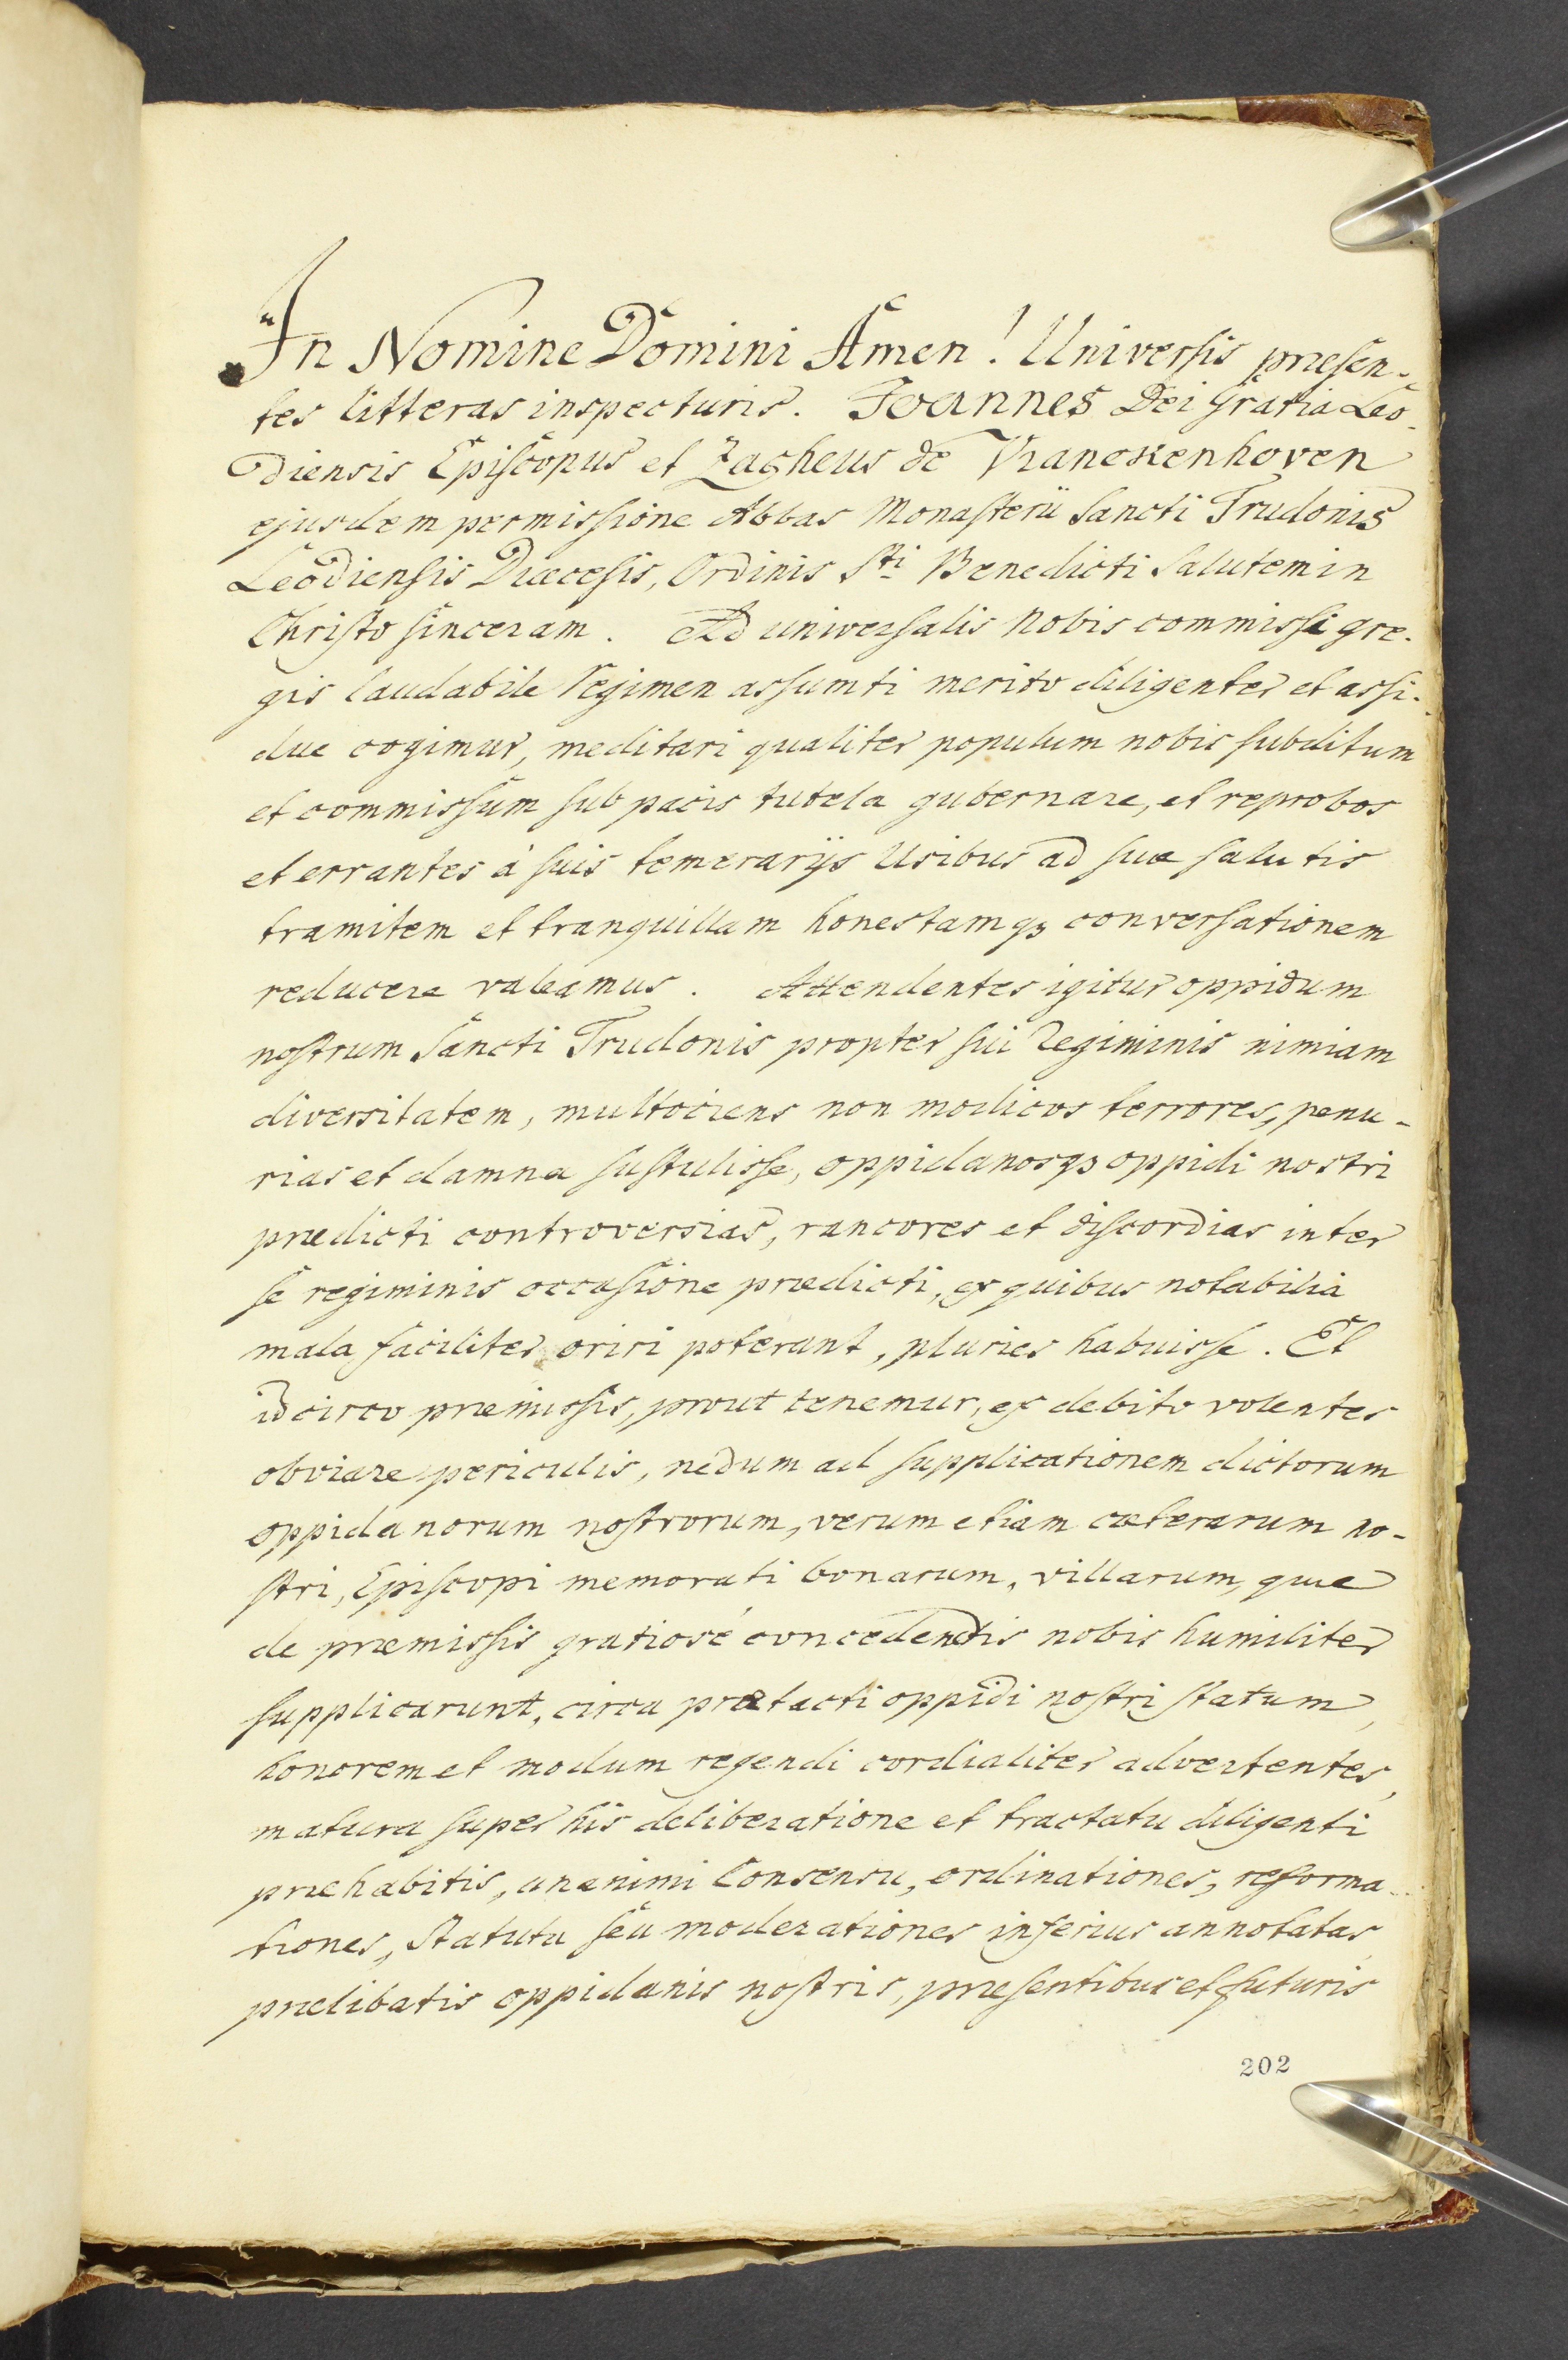 In Nomine Domini Amen! Universis præsen-
tes litteras inspecturis. Joannes Dei Gratia Leo-
diensis Episcopus et Zacheus de Vranckenhoven
ejusdem permissione Abbas Monasterii Sancti Trudonis
Leodiensis Diœcesis, Ordinis Sti Benedicti Salutem in
Christo sinceram. Ad universalis Nobis commissi gre-
gis laudabile Regimen assumti merito diligenter et assi-
due cogimur, meditari qualiter populum nobis subditum
et commissum sub pacis tutela gubernare, et reprobos
et errantes à suis temerarijs Usibus ad suæ salutis
tramitem et tranquillam honestamq3 conversationem
reducere valeamus. Attendentes igitur oppidum
nostrum Sancti Trudonis propter sui Regiminis nimiam
diversitatem, multociens non modicos terrores, penu-
rias et damna sustulisse, oppidanosq3 oppidi nostri
prædicti controversias, rancores et discordias inter
se regiminis occasione prædicti, ex quibus notabilia
mala faciliter oriri poterant, pluries habuisse. Et
idcirco præmissis, prout tenemur, ex debito volentes
obviare periculis, nedum ad supplicationem dictorum
oppidanorum nostrorum, verum etiam cæterarum no-
stri, Episcopi memorati bonarum, villarum, quæ
de præmissis gratiosè concedendis nobis humiliter
supplicarunt, circa prætacti oppidi nostri statum,
honorem et modum regendi cordialiter advertentes,
matura super his deliberatione et tractatu diligenti
præhabitis, unanimi Consensu, ordinationes, reforma-
tiones, Statuta seu moderationes inferius annotatas,
prælibatis oppidanis nostris, præsentibus et futuris
202